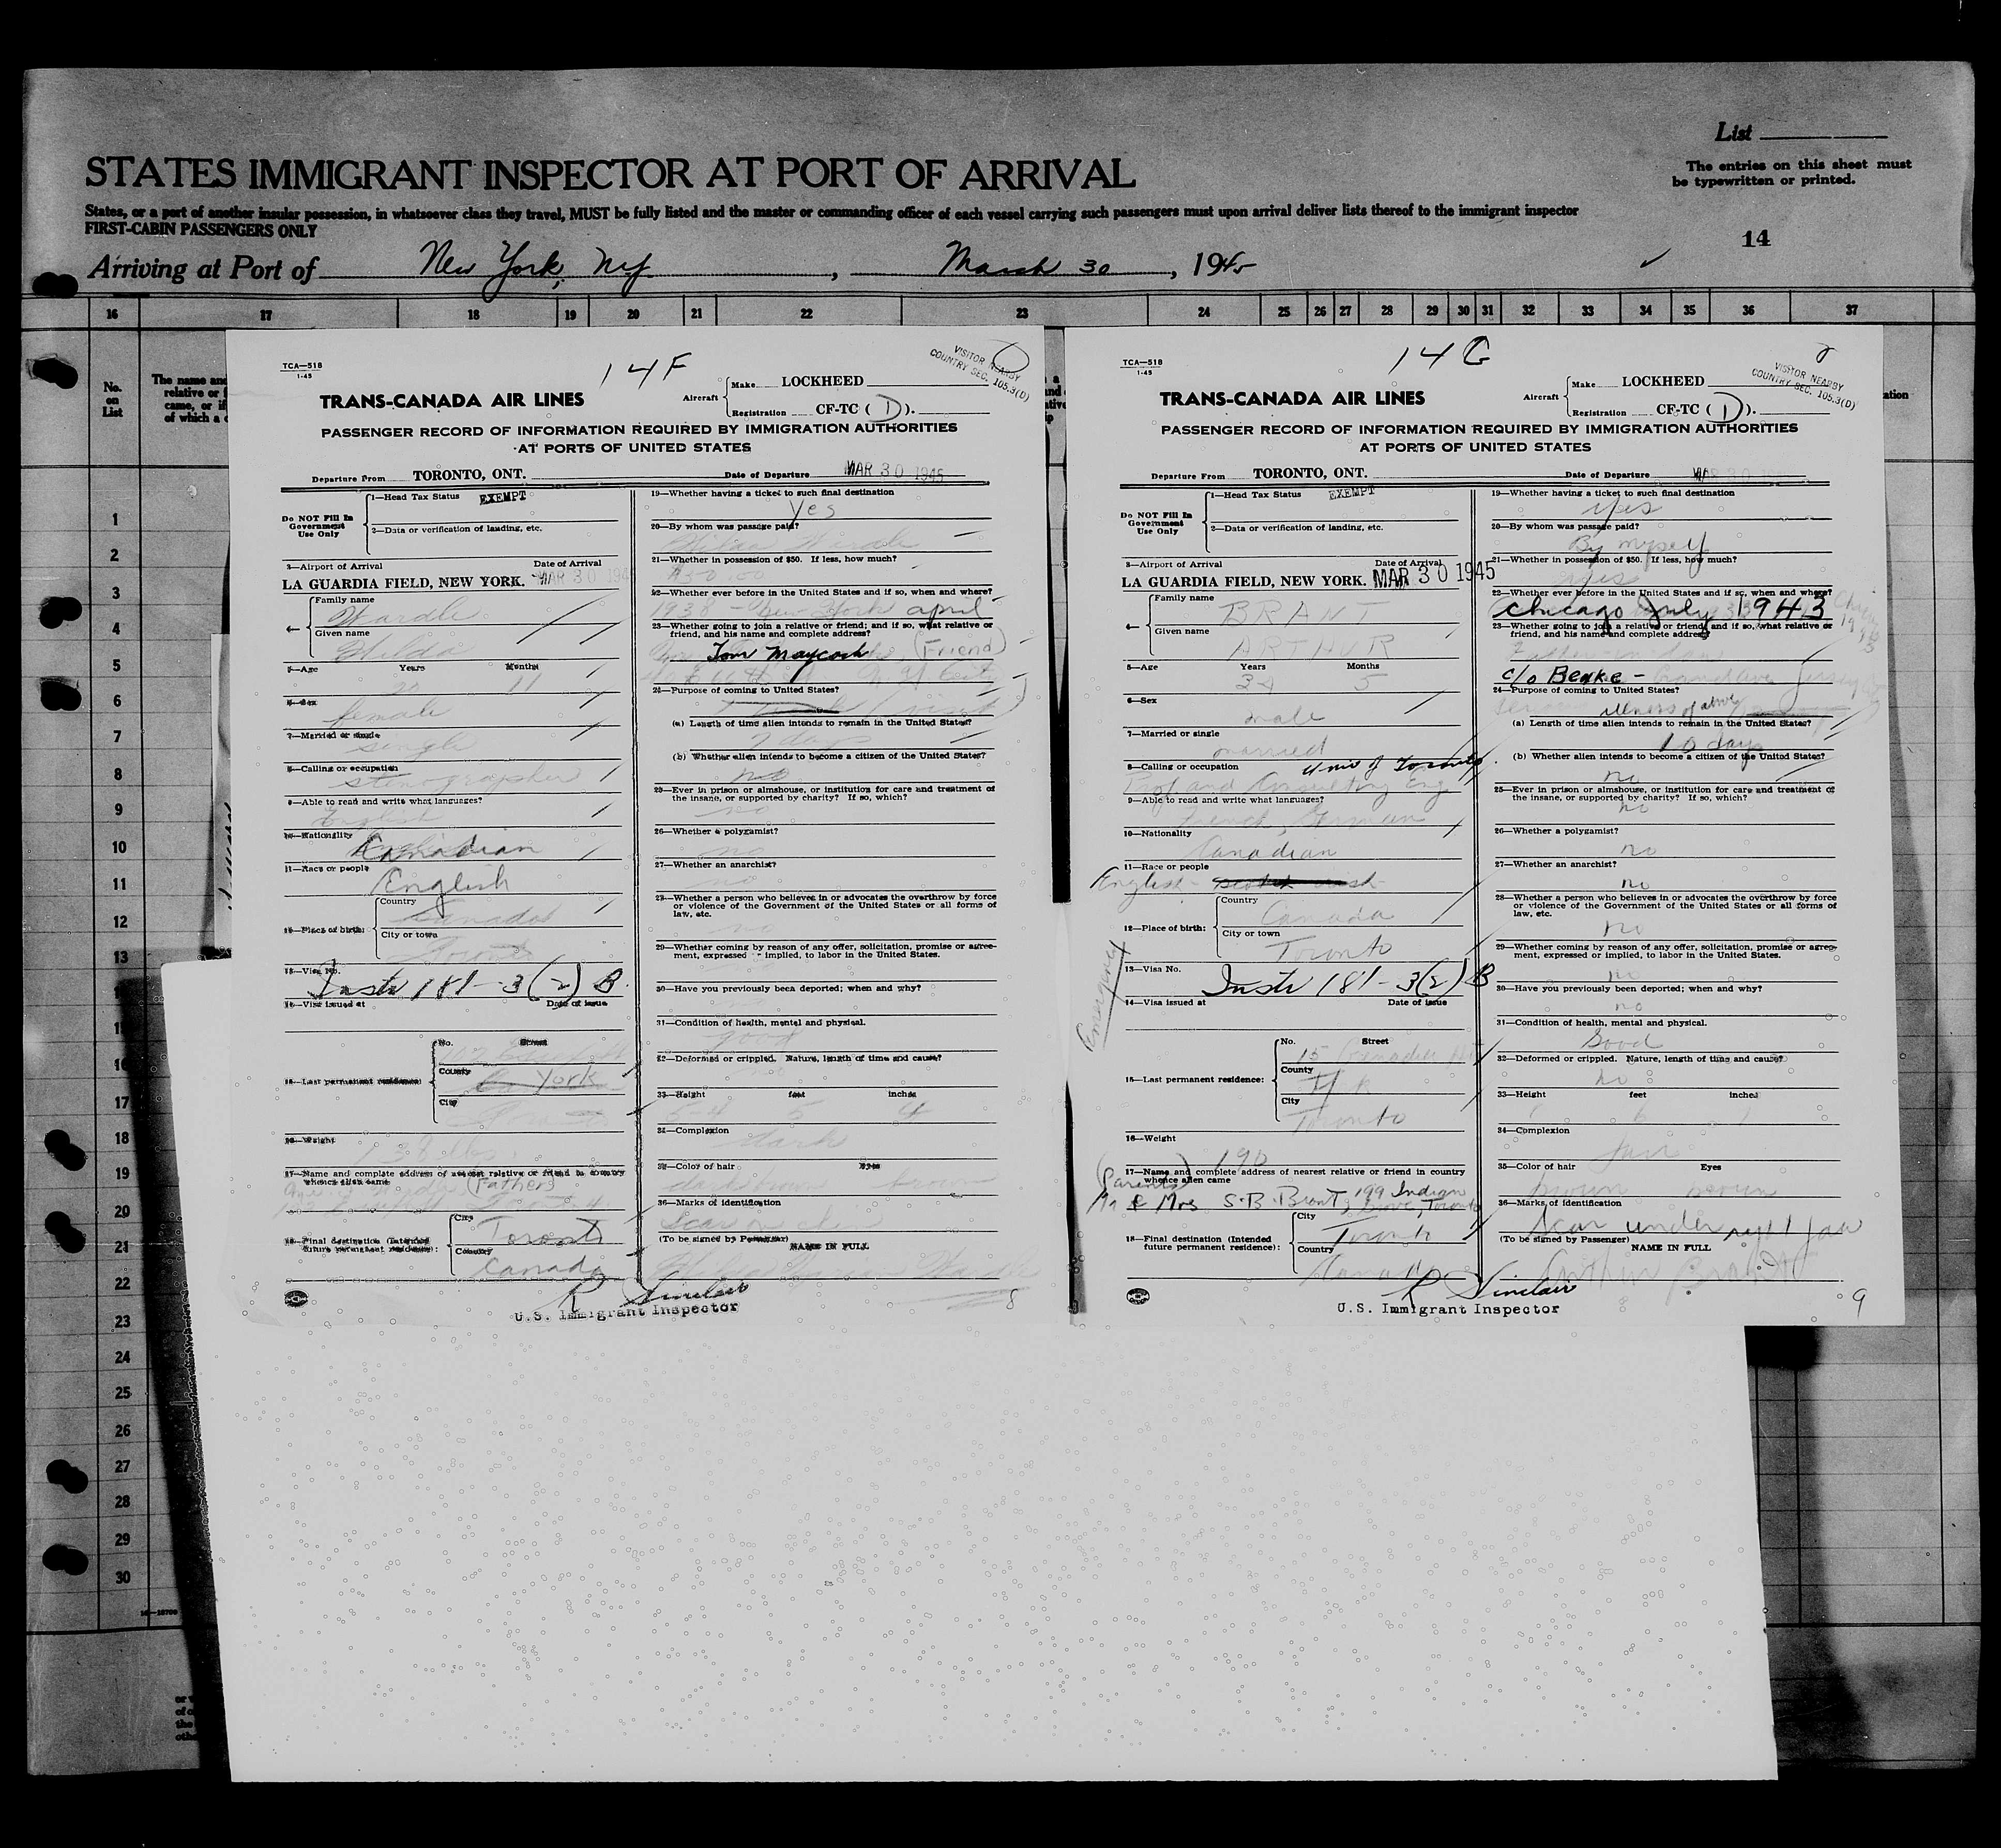 List
The entries on this sheet must
be typewritten or printed.
STATES IMMIGRANT INSPECTOR AT PORT OF ARRIVAL
States, or a port of another insular possession, in whatsoever class they travel, MUST be fully listed and the master or commanding officer of each vessel carrying such passengers must upon arrival deliver lists thereof to the immigrant inspector
FIRST-CABIN PASSENGERS ONLY
14
Arriving at Port of New York, NY, March 30, 1945
16 17 18 19 20 21 22 23 24 25 26 27 28 29 30 31 32 33 34 35 36 37
No.
on
List
The name and
relative or
came, or if
of which a
1
2
3
4
5
6
7
8
9
10
11
12
13
15
16
17
18
19
20
21
22
23
24
25
26
27
28
29
30
TCA—518
1-45
14F
VISITOR NEARBY
COUNTRY SEC. 105.3(D)
TRANS-CANADA AIR LINES
Aircraft
Make LOCKHEED
Registration CF-TC ( D ).
PASSENGER RECORD OF INFORMATION REQUIRED BY IMMIGRATION AUTHORITIES
AT PORTS OF UNITED STATES
Departure From TORONTO, ONT. Date of Departure MAR 30 1945
Do NOT Fill In
Government
Use Only
1—Head Tax Status EXEMPT
2—Data or verification of landing, etc.
3—Airport of Arrival Date of Arrival
LA GUARDIA FIELD, NEW YORK. MAR 30 194
4— Family name
Wardle
Given name
Hilda
5—Age Years Months
11
6—Sex
female
7—Married or single
single
8—Calling or occupation
stenographer
9—Able to read and write what languages?
English
10—Nationality
Canadian
11—Race or people
English
12—Place of birth: Country
Canada
City or town
Toronto
13—Visa No.
Instr 181-3(2) B
14—Visa issued at Date of issue
15—Last permanent residence: No. Street
County
York
City
16—Weight
138 lbs.
17—Name and complete address of nearest relative or friend in country
whence alien came
(Father)
18—Final destination (Intended
future permanent residence): City
Toronto
Country
Canada
19—Whether having a ticket to such final destination
Yes
20—By whom was passage paid?
21—Whether in possession of $50. If less, how much?
22—Whether ever before in the United States and if so, when and where?
1938 - New York april
23—Whether going to join a relative or friend; and if so, what relative or
friend, and his name and complete address?
Tom Maycock (Friend)
24—Purpose of coming to United States?
visit
(a) Length of time alien intends to remain in the United States?
7 days
(b) Whether alien intends to become a citizen of the United States?
no
25—Ever in prison or almshouse, or institution for care and treatment of
the insane, or supported by charity? If so, which?
no
26—Whether a polygamist?
no
27—Whether an anarchist?
no
28—Whether a person who believes in or advocates the overthrow by force
or violence of the Government of the United States or all forms of
law, etc.
no
29—Whether coming by reason of any offer, solicitation, promise or agree-
ment, expressed or implied, to labor in the United States.
30—Have you previously been deported; when and why?
31—Condition of health, mental and physical.
good
32—Deformed or crippled. Nature, length of time and cause?
33—Height feet inches
5 4
34—Complexion
dark
35—Color of hair Eyes
dark brown brown
36—Marks of identification
Scar on chin
(To be signed by Passenger) NAME IN FULL
R Sinclair
U.S. Immigrant Inspector
8
TCA—518
1-45
14G
VISITOR NEARBY
COUNTRY SEC. 105.3(D)
TRANS-CANADA AIR LINES
Aircraft
Make LOCKHEED
Registration CF-TC ( D ).
PASSENGER RECORD OF INFORMATION REQUIRED BY IMMIGRATION AUTHORITIES
AT PORTS OF UNITED STATES
Departure From TORONTO, ONT. Date of Departure
Do NOT Fill In
Government
Use Only
1—Head Tax Status EXEMPT
2—Data or verification of landing, etc.
3—Airport of Arrival Date of Arrival
LA GUARDIA FIELD, NEW YORK. MAR 30 1945
4— Family name
BRANT
Given name
ARTHUR
5—Age Years Months
34 5
6—Sex
male
7—Married or single
married
8—Calling or occupation Univ of Toronto
Prof and Consulting Eng
9—Able to read and write what languages?
French, German
10—Nationality
Canadian
11—Race or people
English
12—Place of birth: Country
Canada
City or town
Toronto
13—Visa No.
Instr 181-3(2) B
14—Visa issued at Date of issue
Emergency
15—Last permanent residence: No. Street
15 Grenadier
County
City
Toronto
16—Weight
190
17—Name and complete address of nearest relative or friend in country
whence alien came
(Parents)
Mr & Mrs S.B. Brant, 199 Indian Grove, Toronto
18—Final destination (Intended
future permanent residence): City
Toronto
Country
Canada
19—Whether having a ticket to such final destination
yes
20—By whom was passage paid?
By myself
21—Whether in possession of $50. If less, how much?
yes
22—Whether ever before in the United States and if so, when and where?
Chicago July 1943
23—Whether going to join a relative or friend; and if so, what relative or
friend, and his name and complete address?
Father-in-law
c/o Beake -
24—Purpose of coming to United States?
illness of above
(a) Length of time alien intends to remain in the United States?
10 days
(b) Whether alien intends to become a citizen of the United States?
no
25—Ever in prison or almshouse, or institution for care and treatment of
the insane, or supported by charity? If so, which?
no
26—Whether a polygamist?
no
27—Whether an anarchist?
no
28—Whether a person who believes in or advocates the overthrow by force
or violence of the Government of the United States or all forms of
law, etc.
no
29—Whether coming by reason of any offer, solicitation, promise or agree-
ment, expressed or implied, to labor in the United States.
no
30—Have you previously been deported; when and why?
no
31—Condition of health, mental and physical.
Good
32—Deformed or crippled. Nature, length of time and cause?
no
33—Height feet inches
6
34—Complexion
fair
35—Color of hair Eyes
brown brown
36—Marks of identification
Scar under right jaw
(To be signed by Passenger) NAME IN FULL
Arthur Brant
R Sinclair
U.S. Immigrant Inspector
9